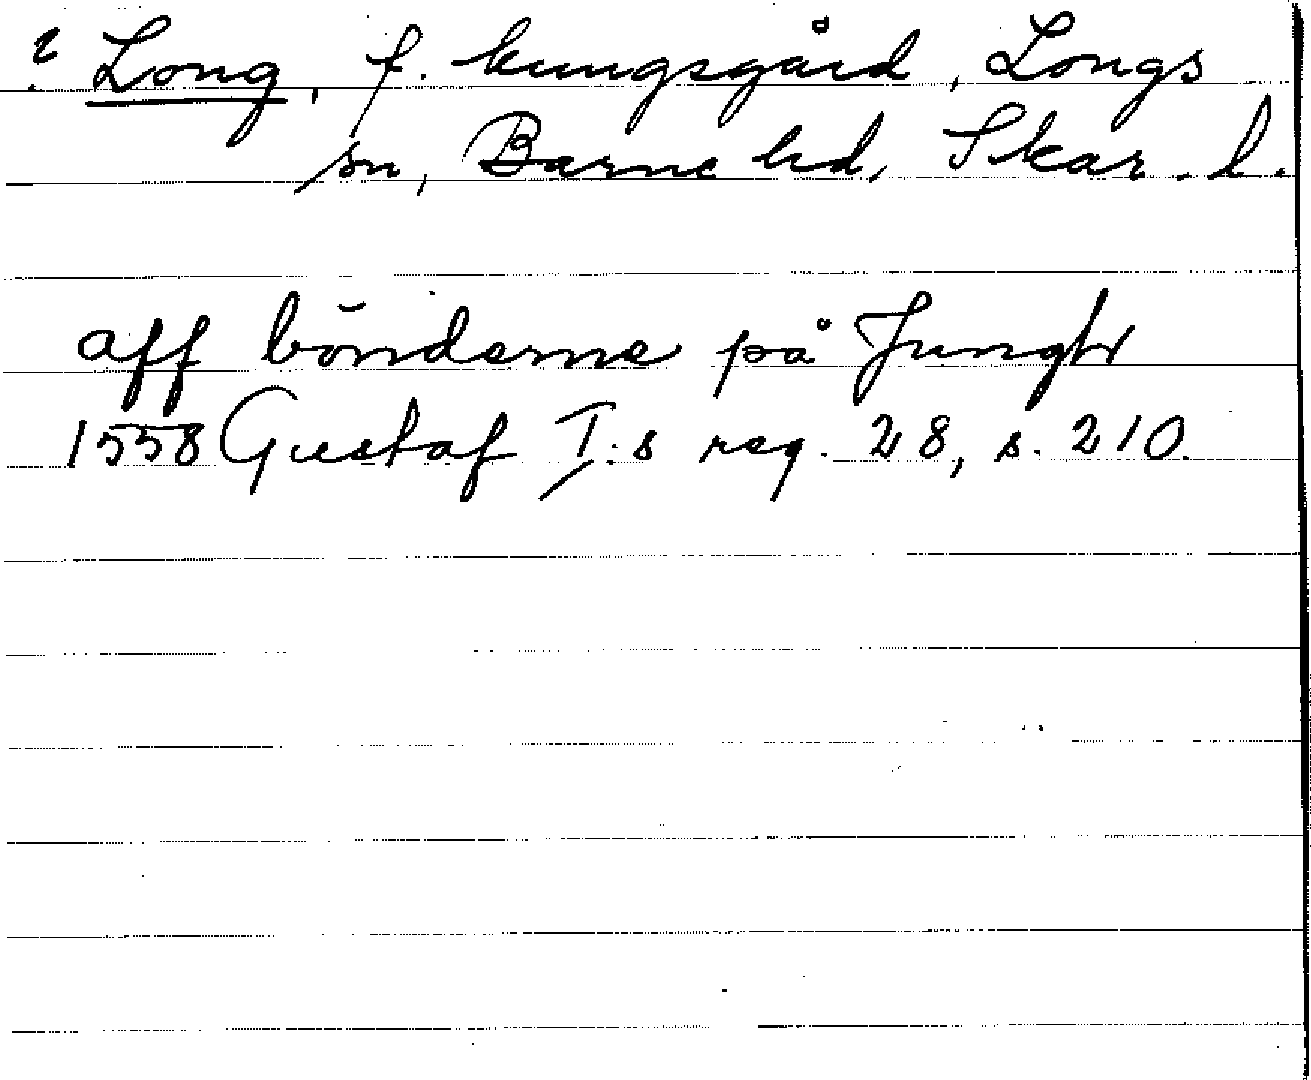 ? Long, f. kungsgård, Longs
sn, Barne hd, Skar. l.
aff bönderne på Jungh
1558 Gustaf I:s reg. 28, s. 210.